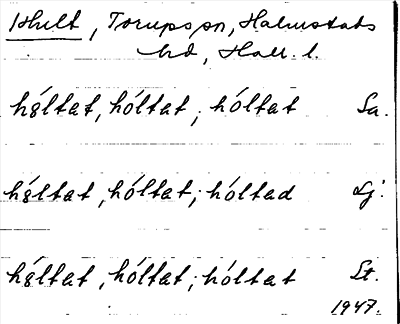 Hult, Torups sn, Halmstads
hd, Hall. l.
hóltat, hóltat; hóltat Sa.
hóltat, hóltat; hóltad Lj.
hóltat, hóltat; hóltat St.
1947.